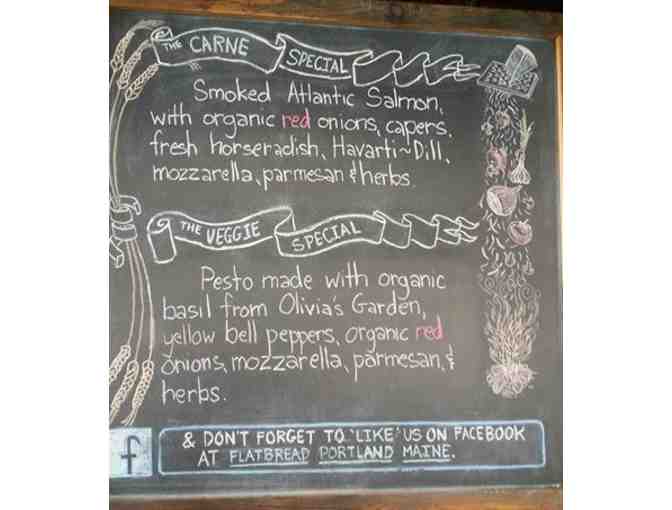 THE CARNE SPECIAL
Smoked Atlantic Salmon,
with organic red onions, capers,
fresh horseradish, Havarti~Dill,
mozzarella, parmesan & herbs.
THE VEGGIE SPECIAL
Pesto made with organic
basil from Olivia's Garden,
yellow bell peppers, organic red
onions, mozzarella, parmesan, &
herbs.
f
& DON'T FORGET TO 'LIKE' US ON FACEBOOK
AT FLATBREAD PORTLAND MAINE.